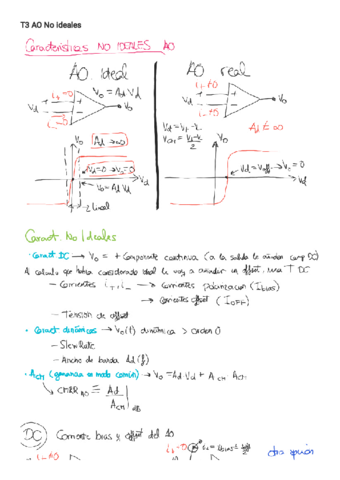 T3 AO No Ideales
Características NO IDEALES AO
AO ideal
AO real
i+=0
i+≠0
Vd
Vo = Ad Vd
Vo
Vo
i-≠0
Ad → ∞
Vd = V+ - V-
Vo
Ad ≠ ∞
Vd=0 → Vo=0
Vd
Vo = Ad Vd
Z lineal
Vd
Caract. No Ideales
· Caract DC → Vo = + Componente continua (a la salida le añaden comp DC)
Al calculo que había considerado ideal le voy a añadir un offset, una T DC
- Corrientes i+, i- → Corrientes polarización (IBIAS)
→ Corrientes offset (IOFF)
- Tensión de offset
· Caract dinámicas → Vo(t) dinámica > orden 0
- Slew Rate
- Ancho de banda Ad(f)
· ACM (ganancia en modo común) → Vo = Ad·Vd + ACM
↳ CMRR AO ≡ Ad / ACM | dB
DC Corriente bias y offset del AO
i-≠0
otra opción